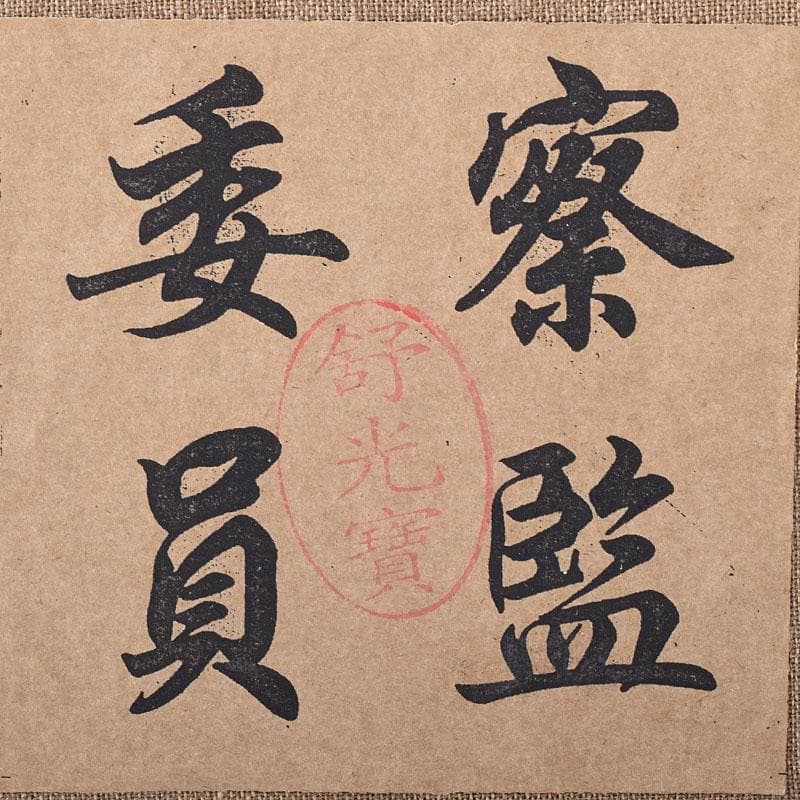 察監
委員
舒光寶